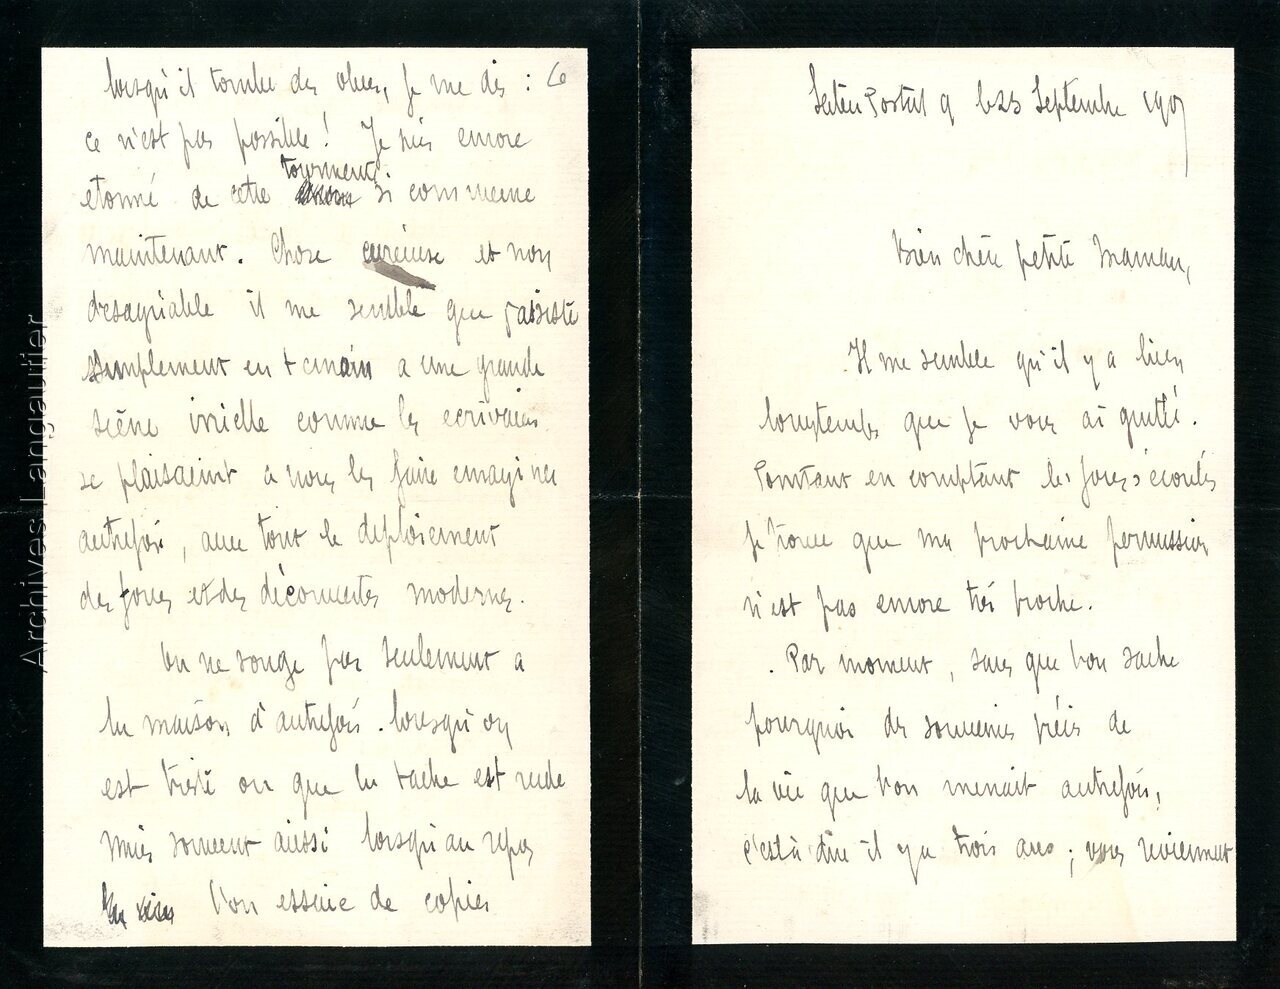 Secteur Postal 9 le 23 Septembre 190
Bien chère petite Maman,
Il me semble qu'il y a bien
longtemps que je vous ai quitté.
Pourtant en comptant les jours écoulés
je trouve que ma prochaine permission
n'est pas encore très proche.
. Par moment, sans que l'on sache
pourquoi des souvenirs précis de
la vie que l'on menait autrefois,
c'est à dire il y a trois ans ; vous reviennent
lorsqu'il tombe des obus, je me dis :
ce n'est pas possible ! Je suis encore
tourmente
etonné de cette si commune
maintenant. Chose curieuse et non
desagréable il me semble que j'assiste
simplement en témoin a une grande
scène irréelle comme les ecrivains
se plaisaient a nous les faire imaginer
autrefois, avec tout le deploiement
des forces et des découvertes modernes.
On ne songe pas seulement a
la maison d'autrefois. lorsqu'on
est triste ou que la tache est rude
mais souvent aussi lorsqu'au repos
l'on essaie de copier
Archives Langautier